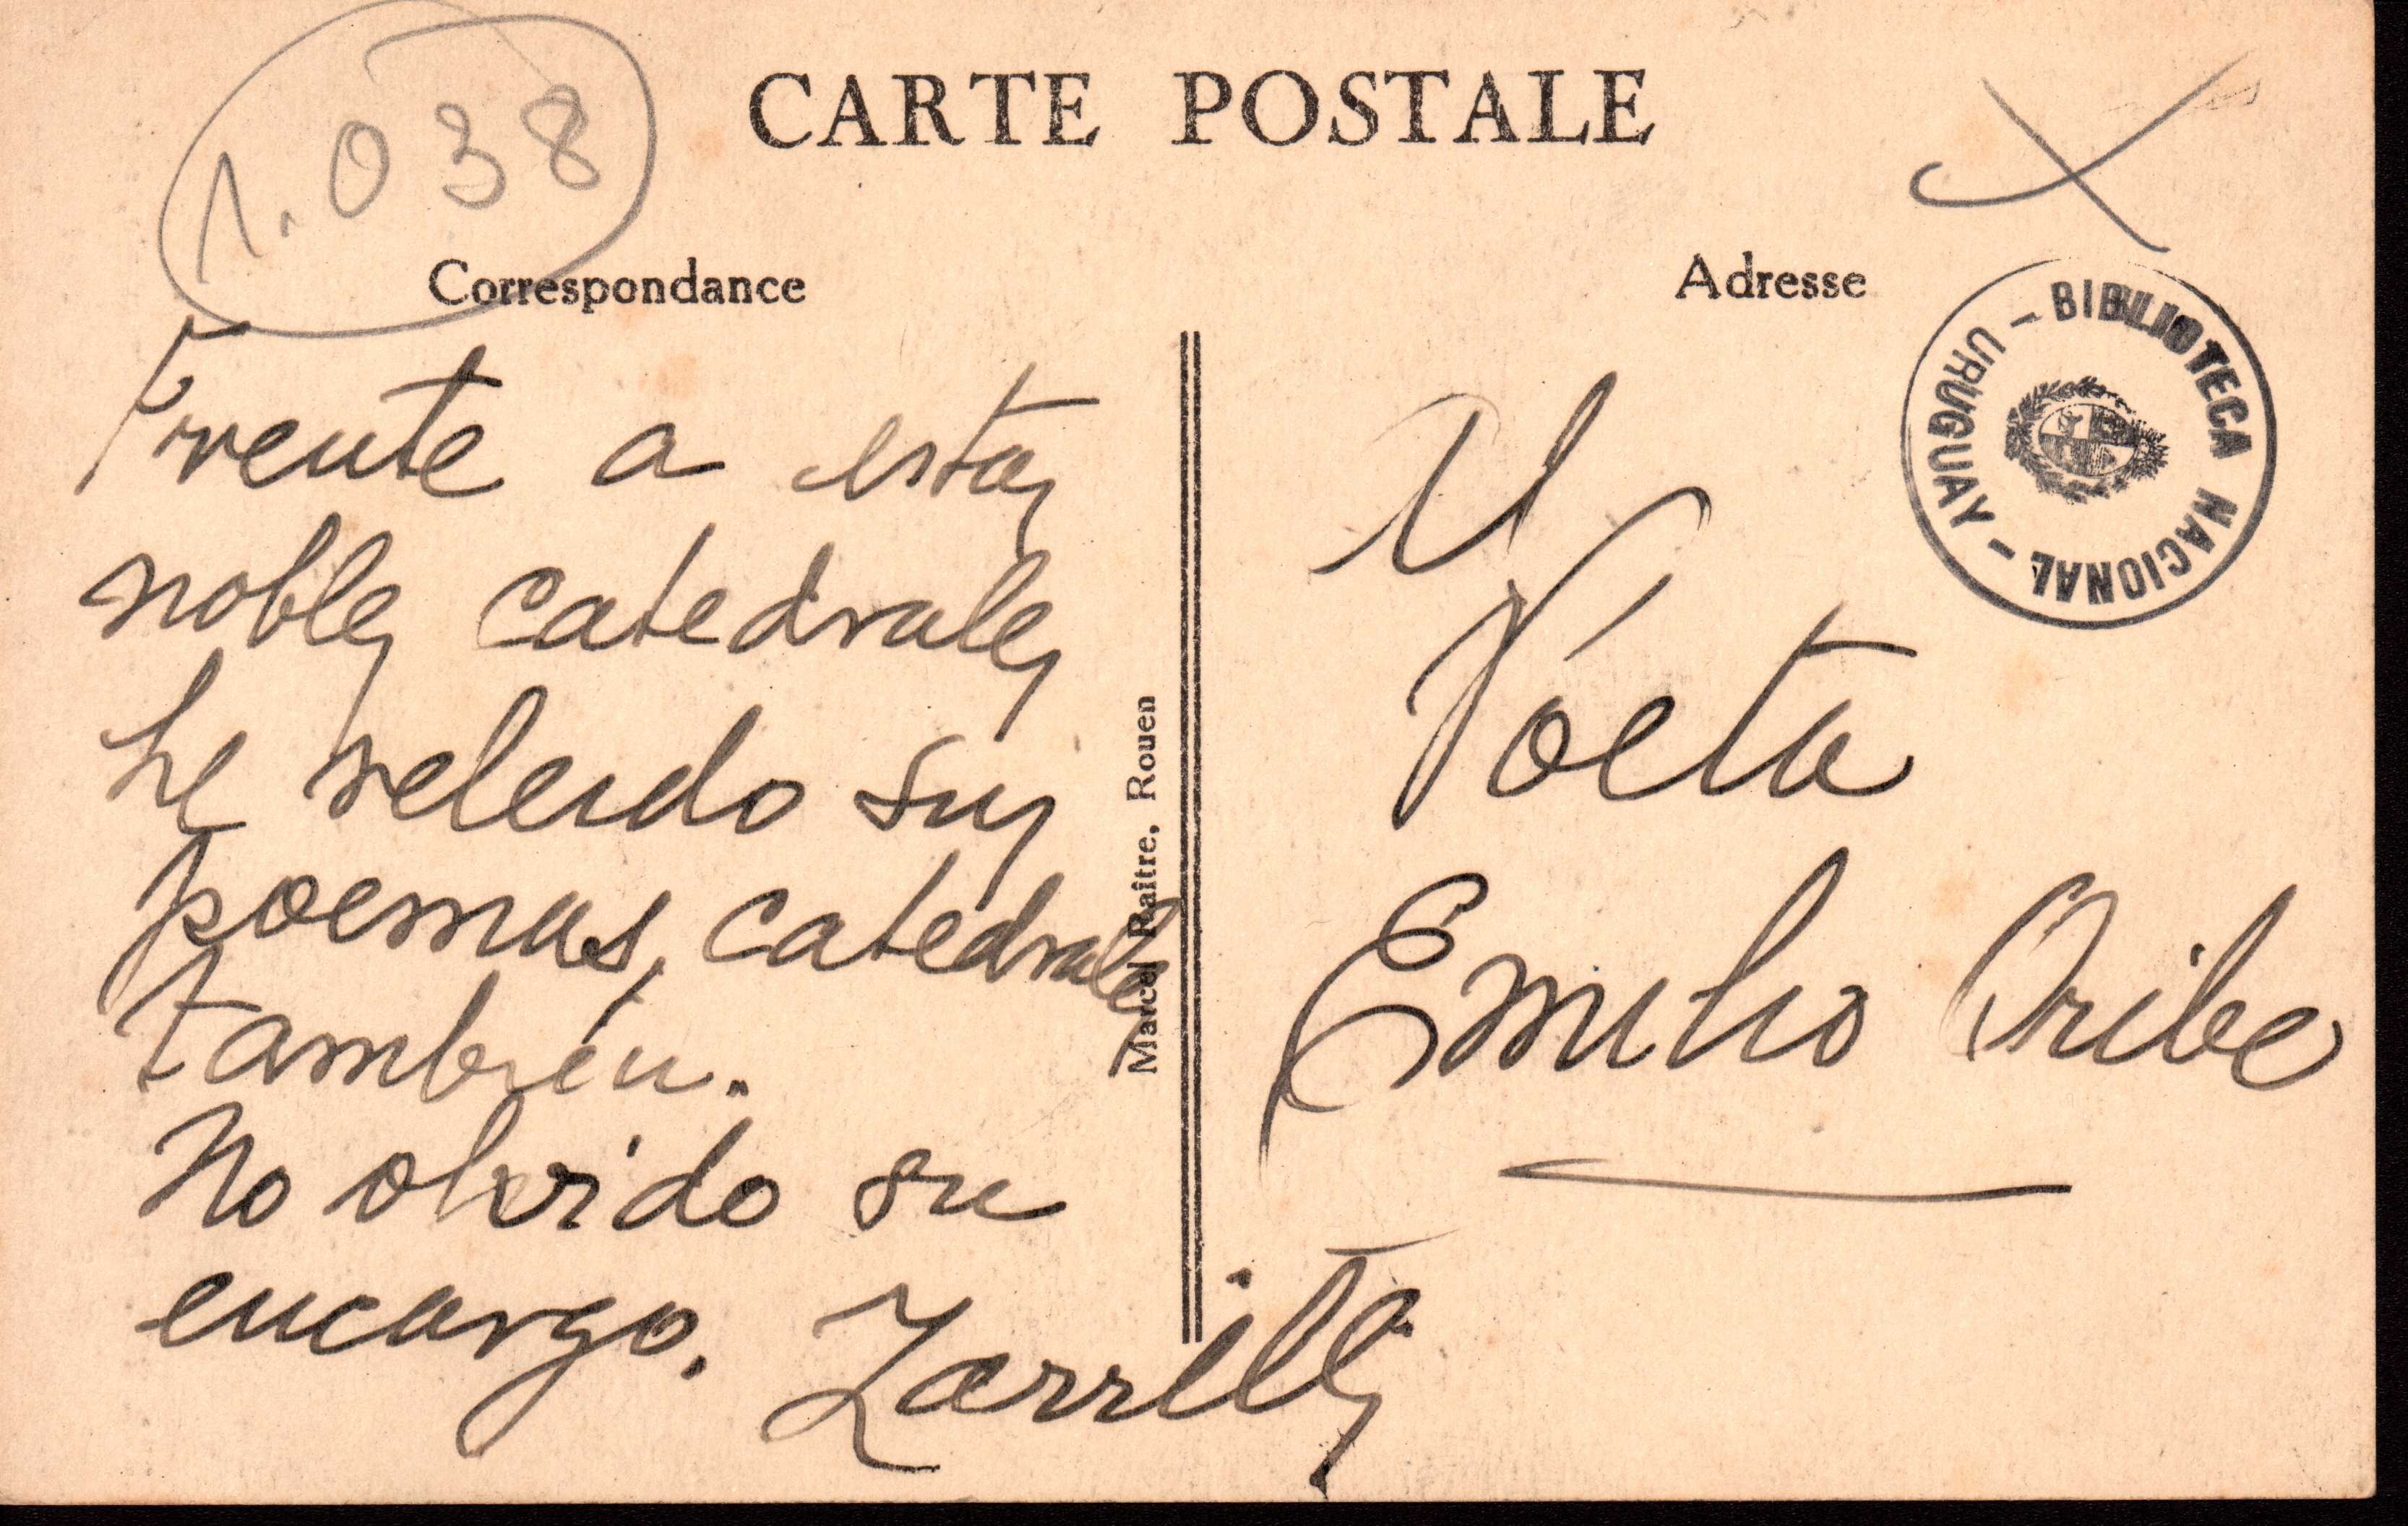 1.038
CARTE POSTALE
Correspondance
Adresse
BIBLIOTECA NACIONAL - URUGUAY -
Frente a estas
nobles catedrales
he releido sus
poemas, catedrales
también.
No olvido su
encargo.
Zorrilla
Marcel Raitre, Rouen
Al
Poeta
Emilio Oribe